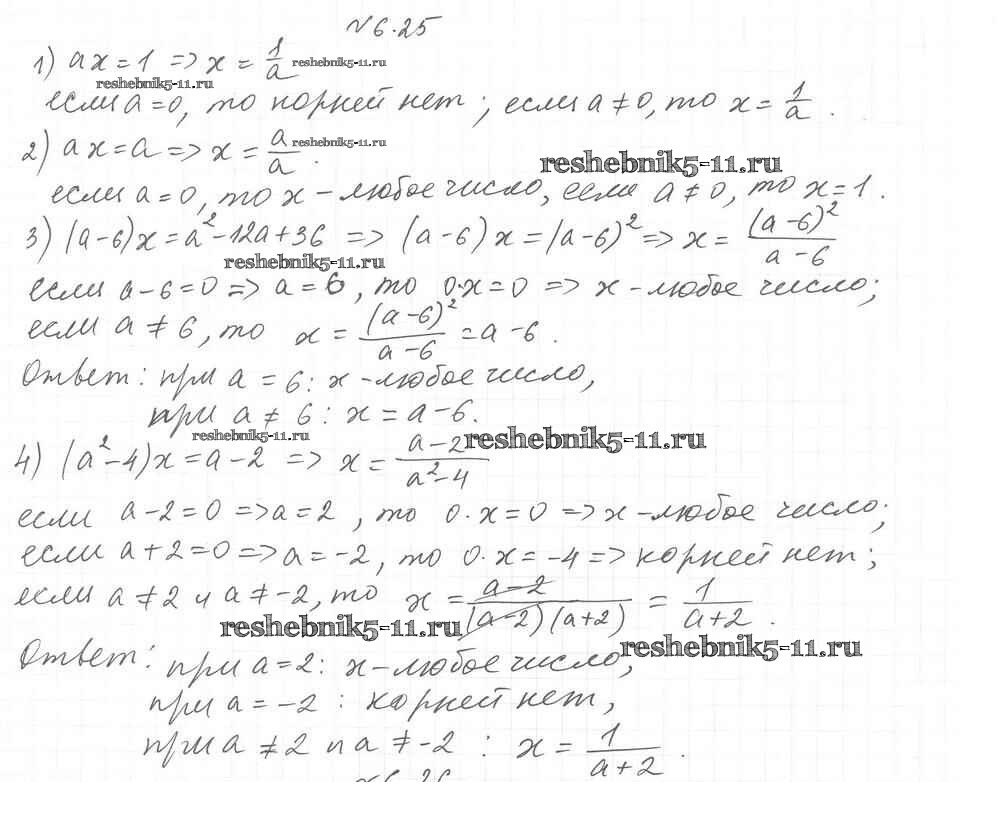 №6.25
1) ax = 1 => x = 1/a reshebnik5-11.ru
reshebnik5-11.ru
если a = 0, то корней нет; если a ≠ 0, то x = 1/a.
2) ax = a => x = a/a. reshebnik5-11.ru
reshebnik5-11.ru
если a = 0, то x - любое число, если a ≠ 0, то x = 1.
3) (a-6)x = a² - 12a + 36 => (a-6)x = (a-6)² => x = (a-6)²/a-6
reshebnik5-11.ru
если a - 6 = 0 => a = 6, то 0·x = 0 => x - любое число;
если a ≠ 6, то x = (a-6)²/a-6 = a - 6.
Ответ: при a = 6: x - любое число,
при a ≠ 6: x = a - 6.
reshebnik5-11.ru
4) (a² - 4)x = a - 2 => x = a-2/a²-4 reshebnik5-11.ru
если a - 2 = 0 => a = 2, то 0·x = 0 => x - любое число;
если a + 2 = 0 => a = -2, то 0·x = -4 => корней нет;
если a ≠ 2 и a ≠ -2, то x = a-2/(a-2)(a+2) = 1/a+2.
reshebnik5-11.ru
reshebnik5-11.ru
Ответ: при a = 2: x - любое число,
при a = -2: корней нет,
при a ≠ 2 и a ≠ -2: x = 1/a+2.